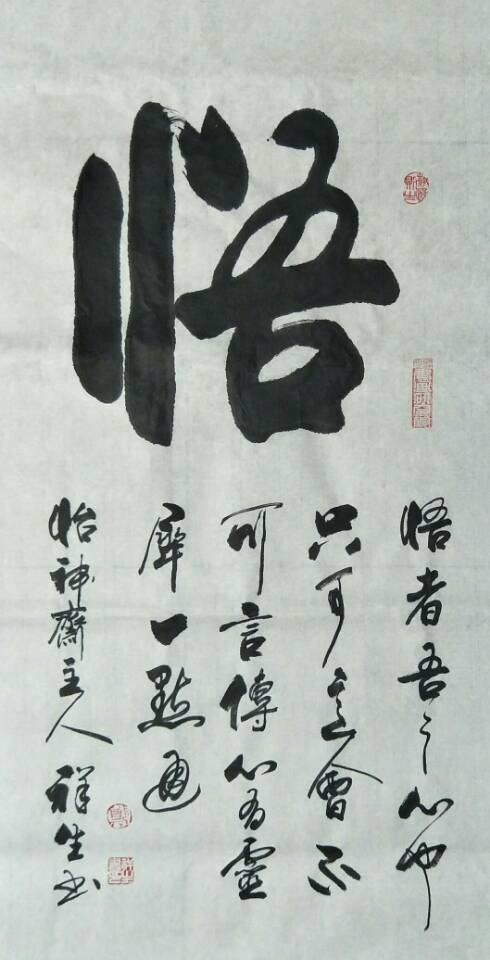 悟
悟者吾之心也
只可意會不
可言傳心有靈
犀一點通
怡神齋主人 祥生书